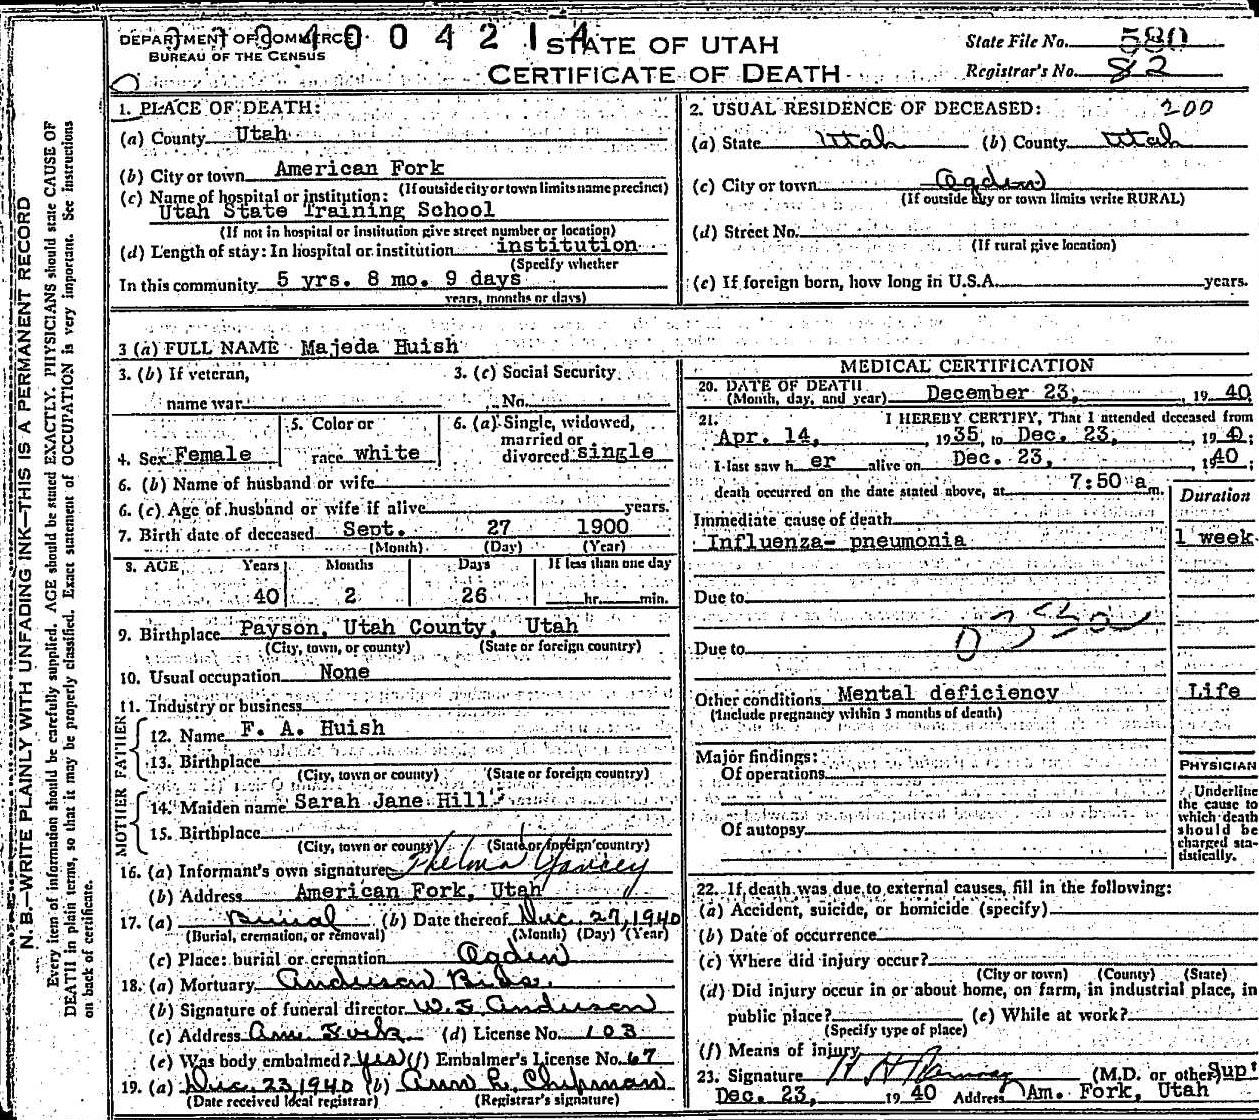 DEPARTMENT OF COMMERCE 004214 STATE OF UTAH State File No. 580
BUREAU OF THE CENSUS CERTIFICATE OF DEATH Registrar's No. 82
N. B.—WRITE PLAINLY WITH UNFADING INK—THIS IS A PERMANENT RECORD
Every item of information should be carefully supplied. AGE should be stated EXACTLY. PHYSICIANS should state CAUSE OF
DEATH in plain terms, so that it may be properly classified. Exact statement of OCCUPATION is very important. See instructions
on back of certificate.
1. PLACE OF DEATH:
(a) County Utah
(b) City or town American Fork
(If outside city or town limits name precinct)
(c) Name of hospital or institution:
Utah State Training School
(If not in hospital or institution give street number or location)
(d) Length of stay: In hospital or institution institution
(Specify whether
In this community 5 yrs. 8 mo. 9 days
years, months or days)
2. USUAL RESIDENCE OF DECEASED: 200
(a) State Utah (b) County Utah
(c) City or town Ogden
(If outside city or town limits write RURAL)
(d) Street No.
(If rural give location)
(e) If foreign born, how long in U.S.A. years.
3 (a) FULL NAME Majeda Huish
3. (b) If veteran, 3. (c) Social Security
name war No.
4. Sex Female 5. Color or race white 6. (a) Single, widowed, married or divorced single
6. (b) Name of husband or wife
6. (c) Age of husband or wife if alive years.
7. Birth date of deceased Sept. 27 1900
(Month) (Day) (Year)
8. AGE Years Months Days If less than one day
40 2 26 hr. min.
9. Birthplace Payson, Utah County, Utah
(City, town, or county) (State or foreign country)
10. Usual occupation None
11. Industry or business
FATHER
12. Name F. A. Huish
13. Birthplace
(City, town or county) (State or foreign country)
MOTHER
14. Maiden name Sarah Jane Hill
15. Birthplace
(City, town or county) (State or foreign country)
16. (a) Informant's own signature Thelma Yancey
(b) Address American Fork, Utah
17. (a) Burial (b) Date thereof Dec. 27, 1940
(Burial, cremation, or removal) (Month) (Day) (Year)
(c) Place: burial or cremation Ogden
18. (a) Mortuary Anderson
(b) Signature of funeral director W. S. Anderson
(c) Address Am. Fork (d) License No. 103
(e) Was body embalmed? Yes (f) Embalmer's License No. 67
19. (a) Dec. 23, 1940 (b) Ann L. Chipman
(Date received local registrar) (Registrar's signature)
MEDICAL CERTIFICATION
20. DATE OF DEATH December 23, 1940
(Month, day, and year)
21. I HEREBY CERTIFY, That I attended deceased from
Apr. 14, 1935, to Dec. 23, 1940;
I last saw her alive on Dec. 23, 1940;
death occurred on the date stated above, at 7:50 a m. Duration
Immediate cause of death
Influenza- pneumonia 1 week
Due to
Due to
Other conditions Mental deficiency Life
(Include pregnancy within 3 months of death)
Major findings:
Of operations
Of autopsy
PHYSICIAN
Underline
the cause to
which death
should be
charged sta-
tistically.
22. If death was due to external causes, fill in the following:
(a) Accident, suicide, or homicide (specify)
(b) Date of occurrence
(c) Where did injury occur?
(City or town) (County) (State)
(d) Did injury occur in or about home, on farm, in industrial place, in
public place? (e) While at work?
(Specify type of place)
(f) Means of injury
23. Signature (M.D. or other) Sup't
Dec. 23, 1940 Address Am. Fork, Utah